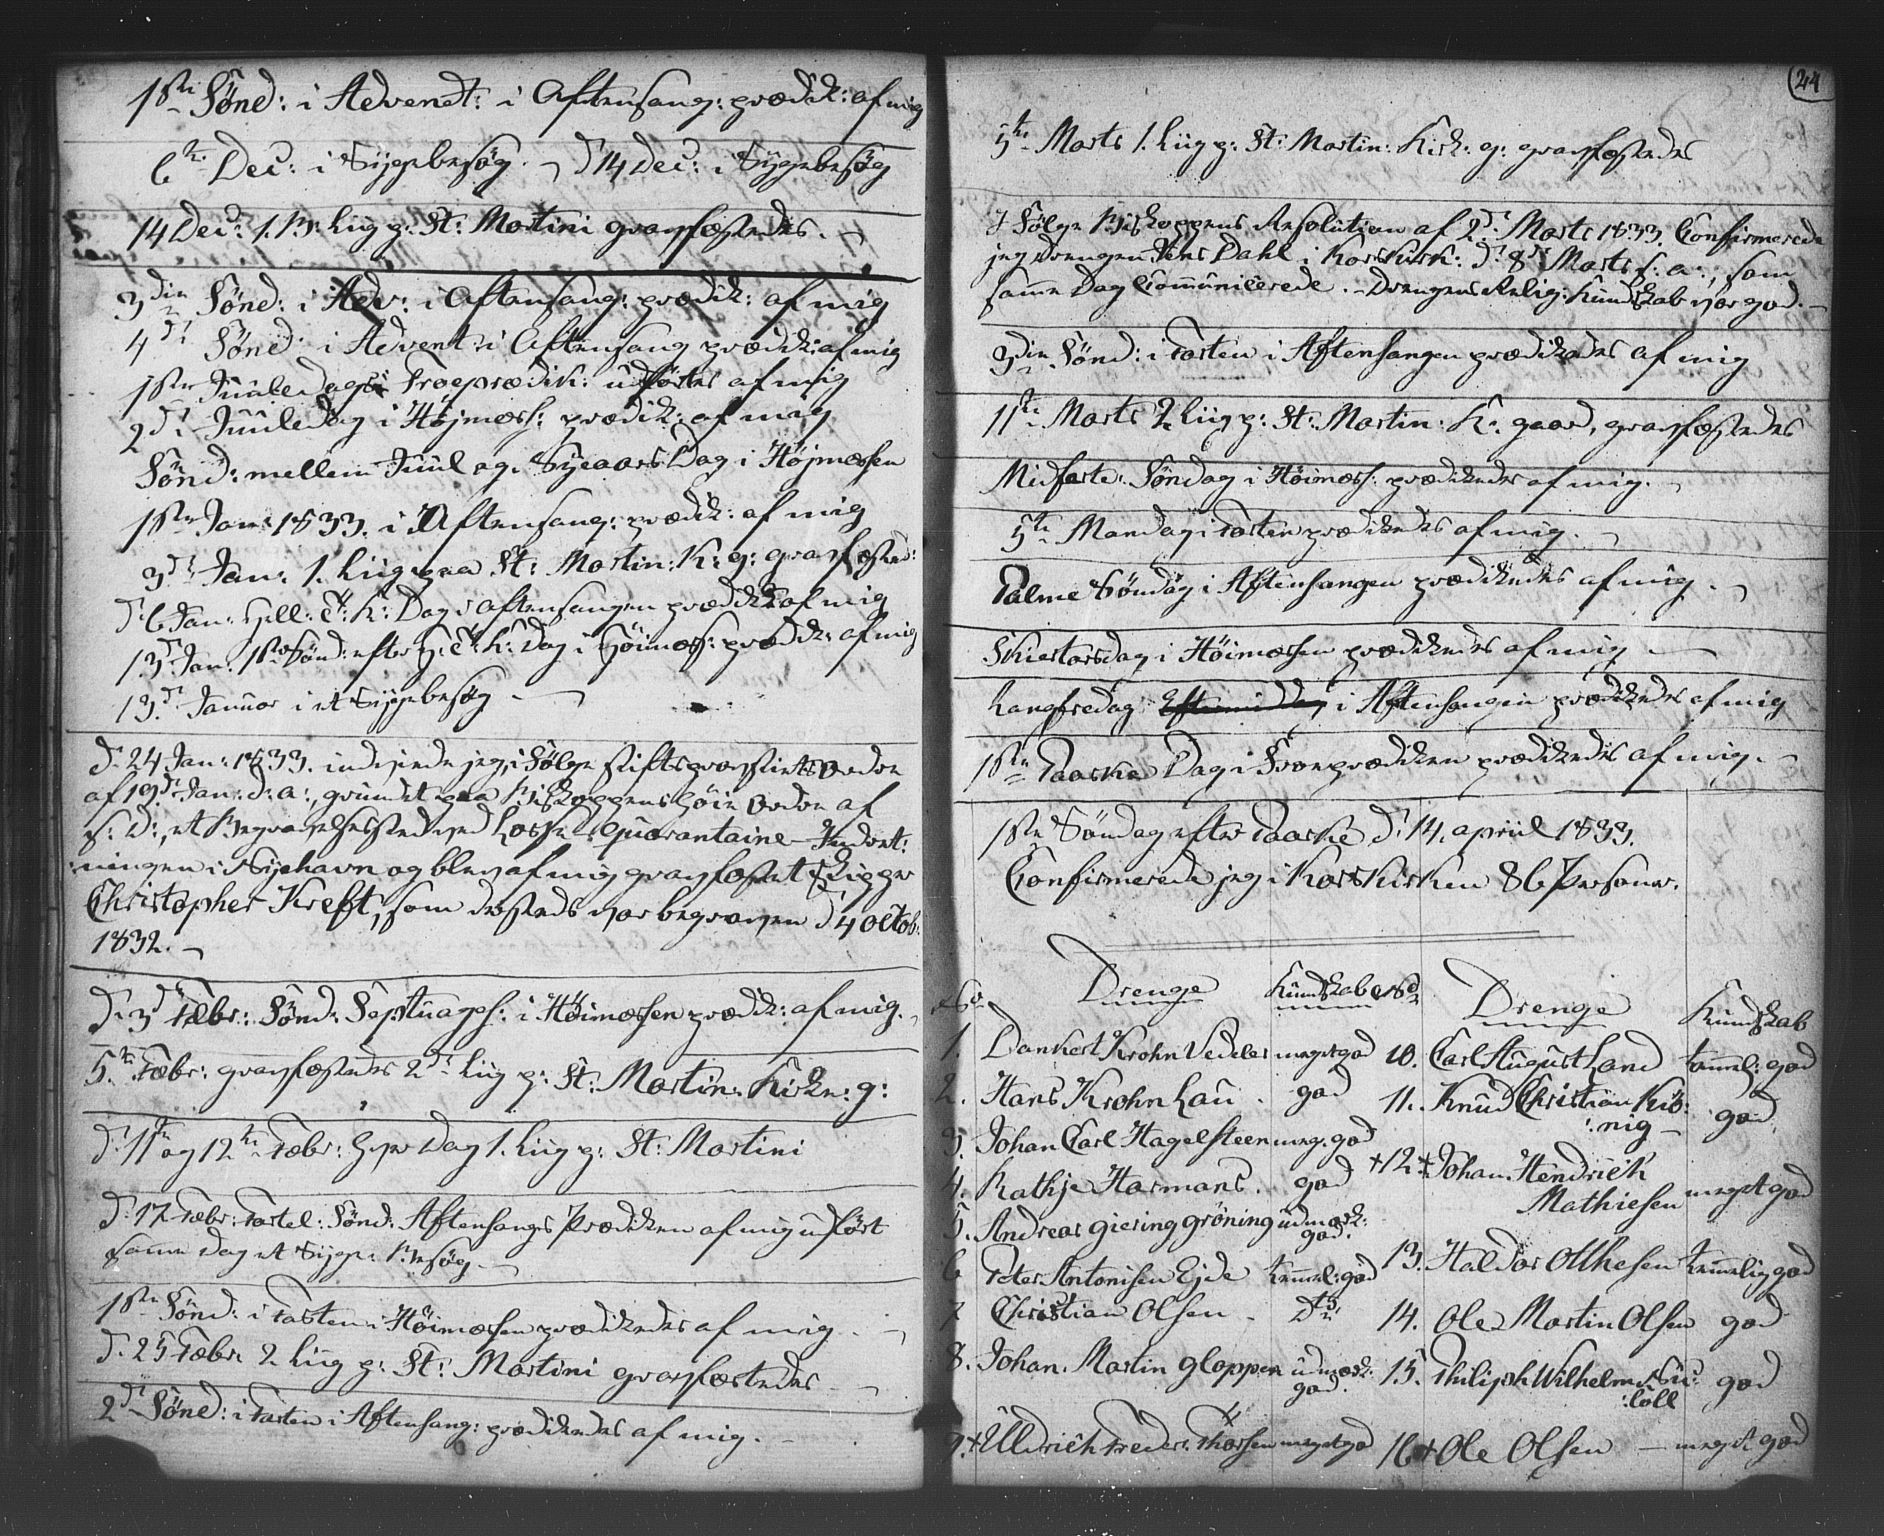 1ste Sønd: i Advendt: i Aftensang: prædik: af mig
6te Dec: i Sygebesøg. d 14 Dec: i Sygebesøg
14 Dec: 1. B: Liig p: St: Martini gravfæstedes.
3die Sønd: i Adv: i Aftensang: prædik: af mig
4de Sønd: i Advent: i Aftensang prædik: af mig
1ste Juuledags Froeprædik: udførtes af mig
2den Juuledag i Højmess: prædik: af mig
Sønd: mellem Juul og Nyeaars Dag i Højmessen
1ste Jan: 1833. i Aftensang: prædik: af mig
3de Jan: 1. Liig paa St: Martin: K: g: gravfæsted:
d 6 Jan: Hell: 3: K: Dag i Aftensangen prædik af mig
13. Jan: 1ste Sønd: efter H: 3: K: Dag i Høimess: prædik: af mig
13. Januar i et Sygebesøg
d. 24 Jan: 1833. indviede jeg, i Følge Stiftsprovstiets Ordre
af 19de Jan: d: a:, grundet paa Biskoppens høie Ordre af
s: D:, et Begravelsessted ved Quarantaine-Indret:
ningen i Nyehavn og blev af mig gravfæstet Skipper
Christopher Kreft, som dersteds var begraven d 4 Octob:
1832.
d. 3de Febr: Sønd: Septuages: i Høimessen prædik: af mig.
5te Febr: gravfæstedes 2de Liig p: St: Martin: Kirke: g:
d. 11te og 12te Febr: hver Dag 1. Liig p: St: Martini
d. 17 Febr: Fastel: Sønd: Aftensangs Prædiken af mig udført
samme Dag et Syge: Besøg.
1ste Sønd: i Fasten i Høimessen prædikedes af mig.
d. 25 Febr: 2 Liig p: St: Martini gravfæstedes
2de Sønd: i Fasten i Aftensang: prædikedes af mig.
24
5te Marts 1. Liig p: St: Martin: Kirk: g: gravfæstedes
I Følge Biskoppens Resolution af 2de Marts 1833. Confirmerede
jeg drengen Jens Dahl i Korskirk: d. 8de Marts s: a:, som
samme Dag Communicerede. - Drengens Relig: Kundskab var god.
3die Sønd: i Fasten i Aftensangen prædikedes af mig
11te Marts 2 Liig p: St: Martin: K: gaard, gravfæstedes
Midfaste: Søndag i Høimess: prædikedes af mig.
5te Mandag i Fasten prædikedes af mig.
Palme Søndag i Aftensangen prædikedes af mig.
Skiertorsdag i Høimessen prædikedes af mig
Langfredag Eftermiddag i Aftensangen prædikedes af mig
1ste Paaske Dag i Froeprædiken prædikedes af mig.
1ste Søndag efter Paaske d. 14. april 1833.
Confirmerede jeg i Korskirken 86 Personer.
No Drenge Kundskab No Drenge Kundskab
1. Dankert Krohn Vedeler meget god 10. Carl August Land temmel: god
2. Hans Krohn Lau. god 11. Knud Christian Kiö:
:nig god
3. Johan Carl Hagelsteen meg: god
4. Rathje Harmans. god +12. Johan Hendrich
Mathiesen meget god
5. Andreas Giering Gröning udmærk:
god.
6 Peter Antonisen Ejde temmel: god 13. Haldor Olthesen temmelig god
7 Christian Olsen. Dto 14. Ole Martin Olsen god
8. Johan Martin Gloppen udmærk:
god. 15. Philiph Wilhelm
:löll god
9.+ Uldrich Freder: Thorsen meget god 16+ Ole Olsen - meget god